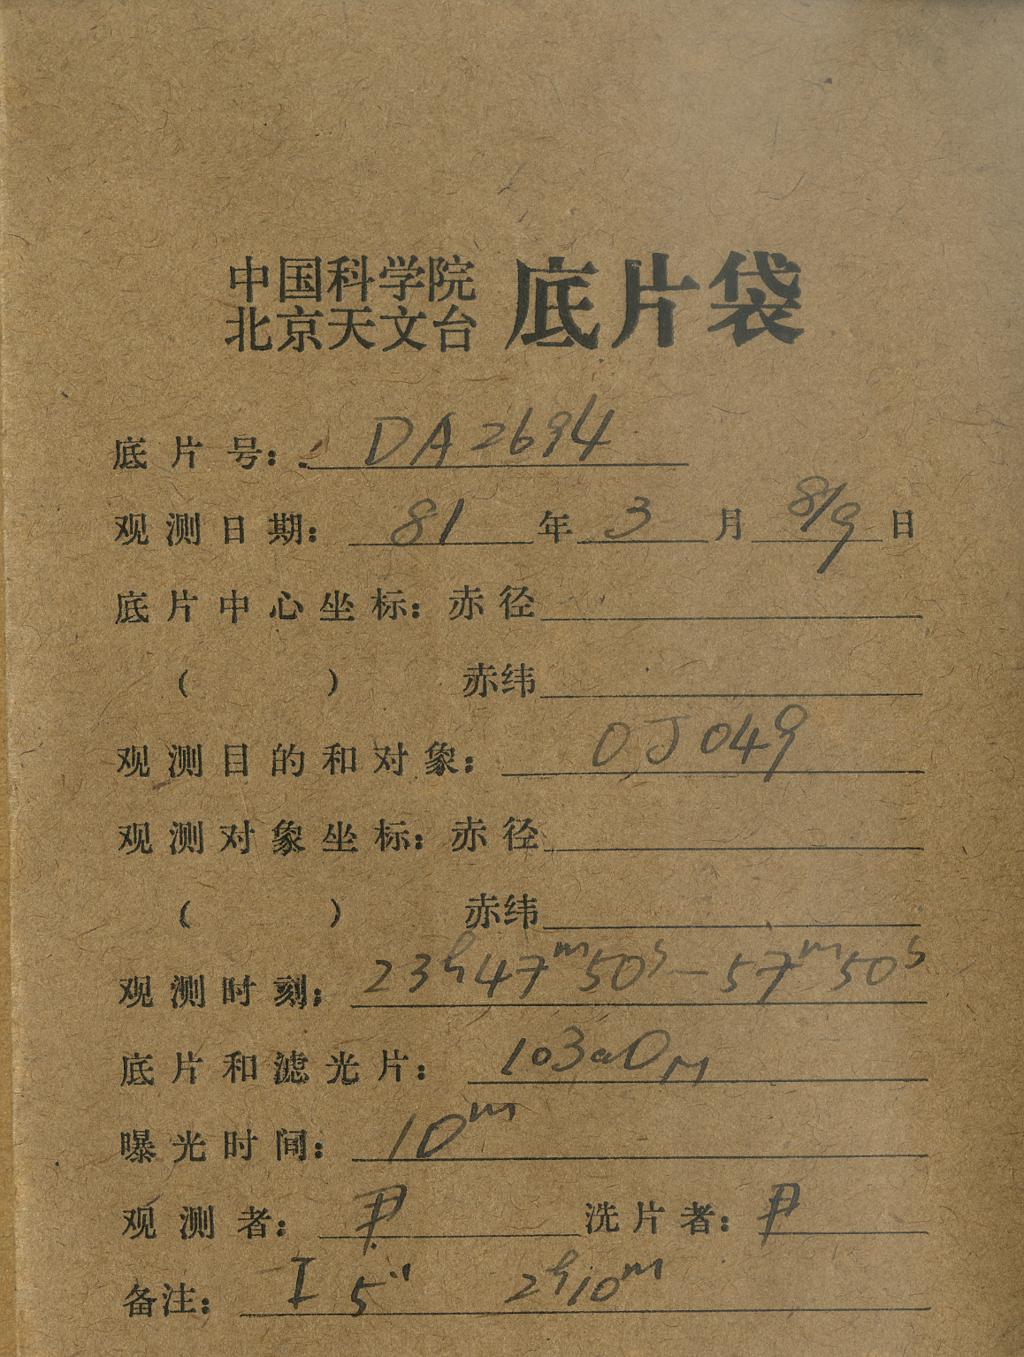 中国科学院
北京天文台 底片袋
底片号: DA2694
观测日期: 81 年 3 月 8/9 日
底片中心坐标: 赤径
( ) 赤纬
观测目的和对象: OJ049
观测对象坐标: 赤径
( ) 赤纬
观测时刻: 23h47m50s—57m50s
底片和滤光片: 103aO
曝光时间: 10m
观测者: 尹 洗片者: 尹
备注: I 5" 2h10m